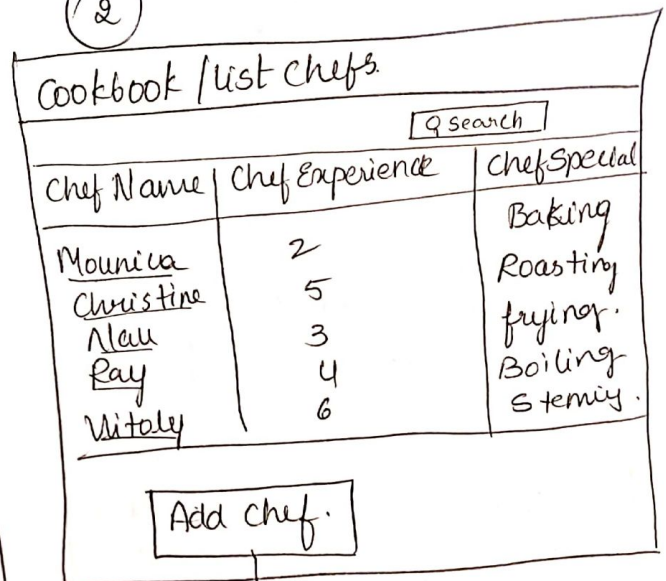 2
Cookbook / list Chefs.
search
Chef Name | Chef Experience | Chef Special
Mounica 2 Baking
Christine 5 Roasting
3 frying.
Ray 4 Boiling
Vitaly 6
Add Chef.